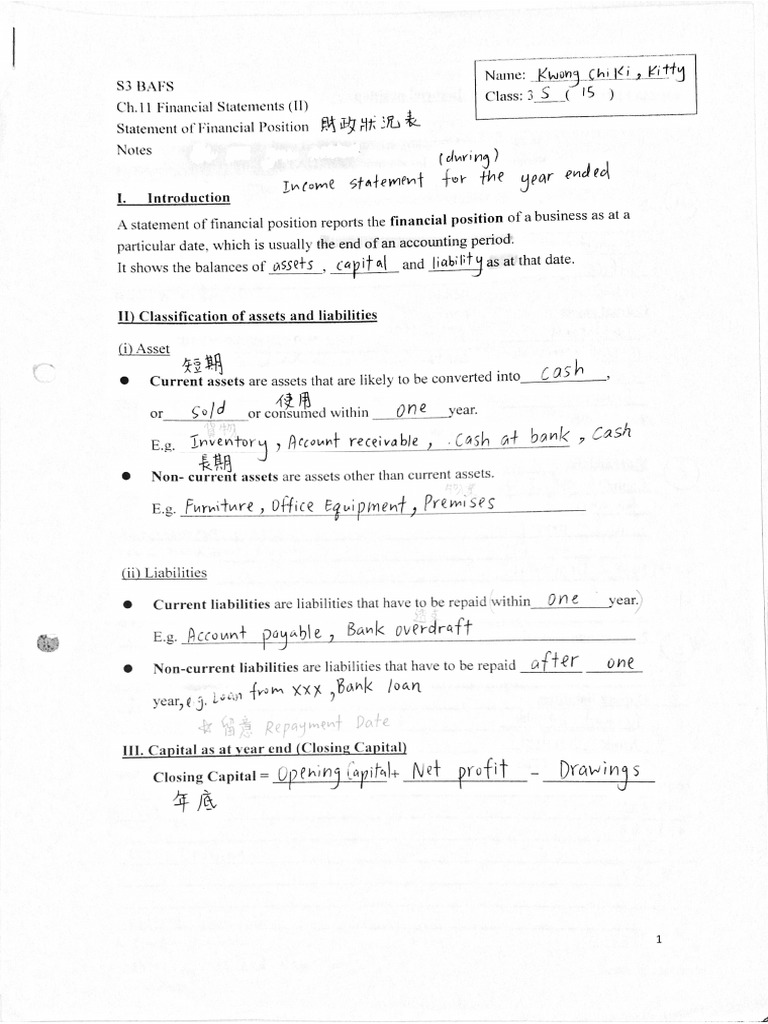 S3 BAFS
Name: Kwong Chi Ki, Kitty
Ch.11 Financial Statements (II)
Class: 3 S ( 15 )
Statement of Financial Position 財政狀況表
Notes
(during)
Income statement for the year ended
I. Introduction
A statement of financial position reports the financial position of a business as at a
particular date, which is usually the end of an accounting period.
It shows the balances of assets , capital and liability as at that date.
II) Classification of assets and liabilities
(i) Asset
短期
● Current assets are assets that are likely to be converted into cash ,
使用
or sold or consumed within one year.
貨物
E.g. Inventory , Account receivable , Cash at bank , Cash
長期
● Non- current assets are assets other than current assets.
E.g. Furniture , Office Equipment , Premises
(ii) Liabilities
● Current liabilities are liabilities that have to be repaid (within one year.)
透支
E.g. Account payable , Bank overdraft
● Non-current liabilities are liabilities that have to be repaid after one
year, e.g. Loan from xxx , Bank loan
☆ 留意 Repayment Date
III. Capital as at year end (Closing Capital)
Closing Capital = Opening Capital + Net profit - Drawings
年底
1